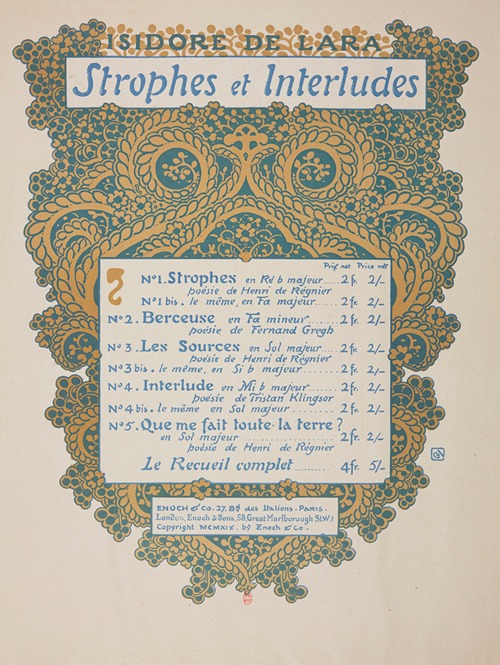 ISIDORE DE LARA
Strophes et Interludes
Prix net Price net
No1. Strophes en Ré b majeur...... 2 fr. 2/-
poésie de Henri de Régnier
No1 bis. le même, en Fa majeur...... 2 fr. 2/-
No2. Berceuse en Fa mineur....... 2 fr. 2/-
poésie de Fernand Gregh
No3. Les Sources en Sol majeur.... 2 fr. 2/-
poésie de Henri de Régnier
No3 bis. le même, en Si b majeur........ 2 fr. 2/-
No4. Interlude en Mi b majeur....... 2 fr. 2/-
poésie de Tristan Klingsor
No4 bis. le même en Sol majeur........ 2 fr. 2/-
No5. Que me fait toute la terre?
en Sol majeur ................ 2 fr. 2/-
poésie de Henri de Régnier
Le Recueil complet......... 4 fr. 5/-
ENOCH & Co. 27, Bd des Italiens. PARIS.
London, Enoch & Sons, 58, Great Marlborough St. W.1
Copyright MCMXIX. by Enoch & Co.